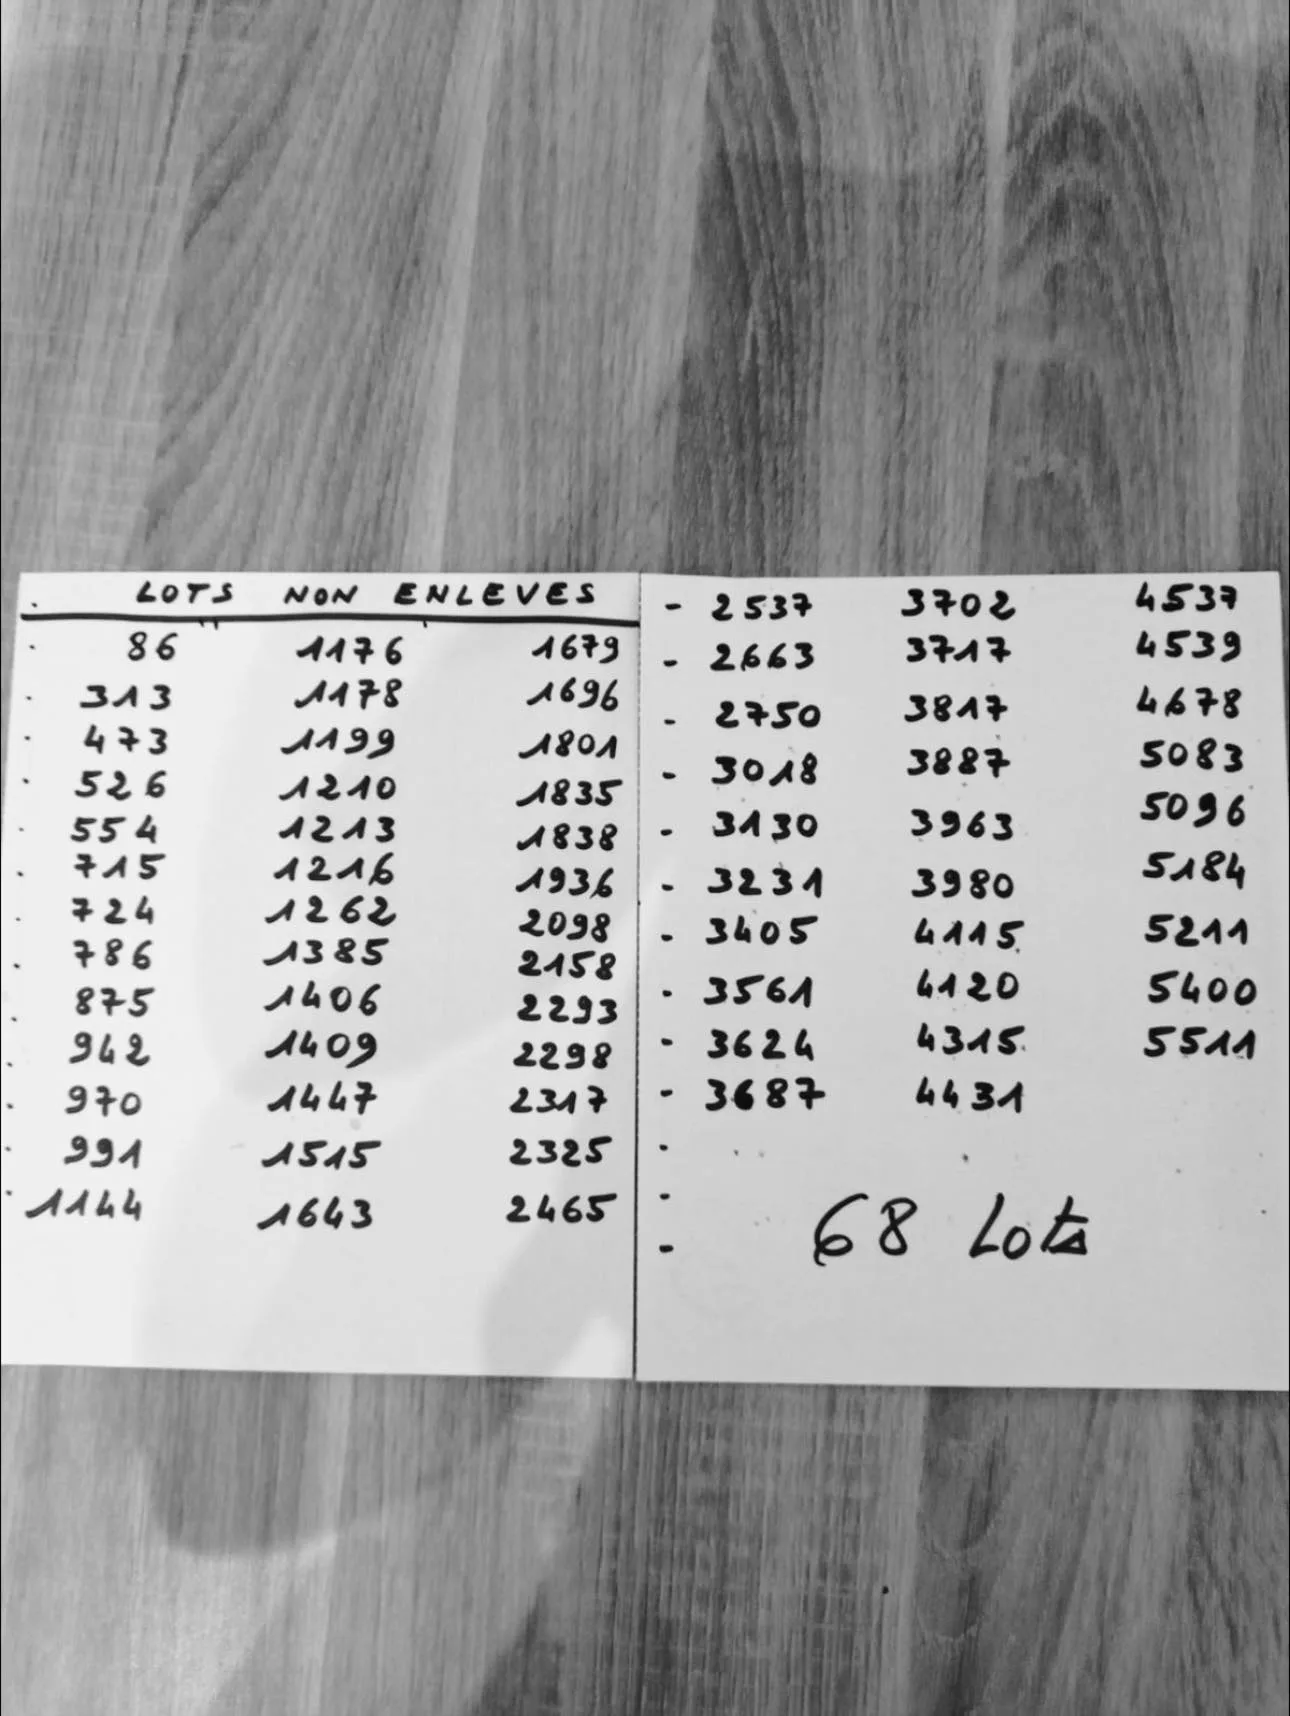 LOTS NON ENLEVES
86 1176 1679
313 1178 1696
473 1199 1801
526 1210 1835
554 1213 1838
715 1216 1936
724 1262 2098
786 1385 2158
875 1406 2293
942 1409 2298
970 1447 2317
991 1515 2325
1144 1643 2465
- 2537 3702 4537
- 2663 3717 4539
- 2750 3817 4678
- 3018 3887 5083
- 3130 3963 5096
- 3231 3980 5184
- 3405 4115 5211
- 3561 4120 5400
- 3624 4315 5511
- 3687 4431
68 Lots